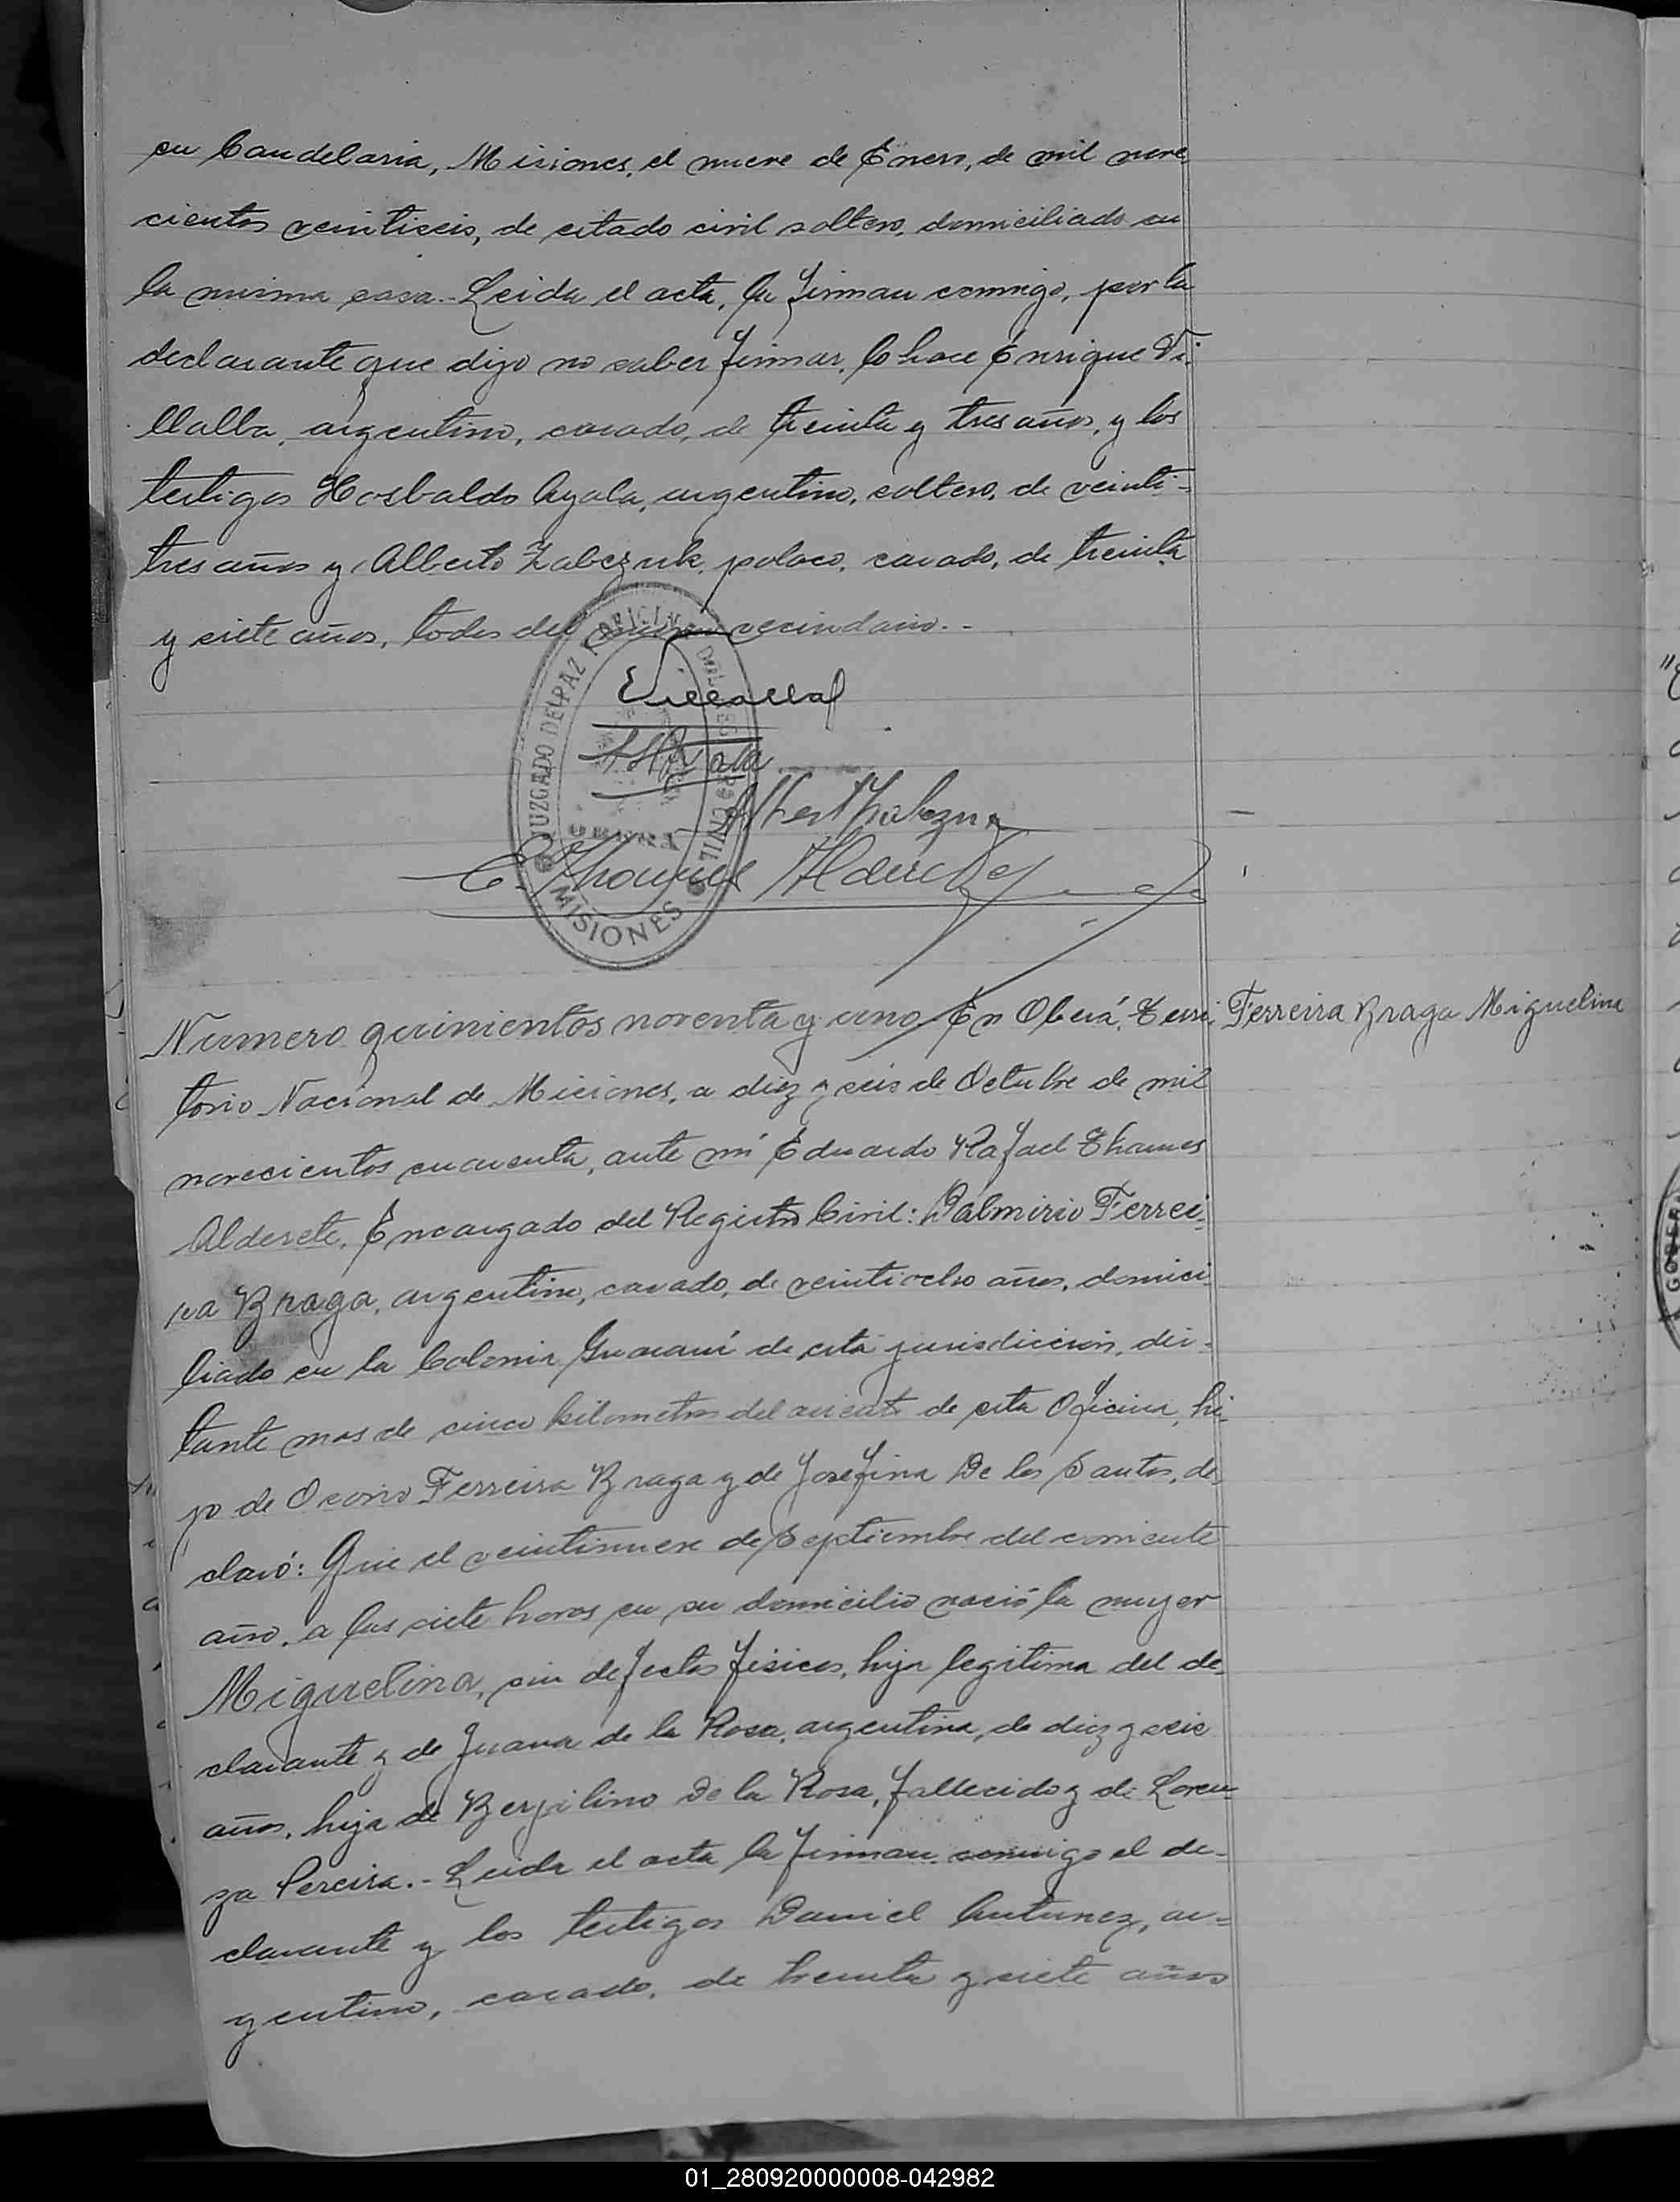 en Candelaria, Misiones, el nueve de Enero, de mil nove
cientos veintiseis, de estado civil soltero, domiciliado en
la misma casa.- Leida el acta, la firman conmigo, por la
declarante que dijo no saber firmar, lo hace Enrique Vi-
llalba, argentino, casado, de treinta y tres años, y los
testigos Hosbaldo Ayala, argentino, soltero, de veinti-
tres años y Alberto Zabczuk, polaco, casado, de treinta
y siete años, todos del mismo vecindario.-
JUZGADO DE PAZ
REGISTRO CIVIL
OBERA
MISIONES
Numero quinientos noventa y uno. En Oberá, Terri-
Ferreira Braga Miguelina
torio Nacional de Misiones, a diez y seis de Octubre de mil
novecientos cuarenta, ante mí Eduardo Rafael Thames
Alderete, Encargado del Registro Civil: Dalmirio Ferrei-
ra Braga, argentino, casado, de veintiocho años, domici-
liado en la Colonia Guaraní de esta jurisdiccion, dis-
tante mas de cinco kilometros del asiento de esta Oficina, hi-
jo de Osorio Ferreira Braga y de Josefina De los Santos, de-
claró: Que el veintinueve de Septiembre del corriente
año, a las siete horas en su domicilio nació la mujer
Miguelina, sin defectos físicos, hija legítima del de-
clarante y de Juana de la Rosa, argentina, de diez y seis
años, hija de Berjilino De la Rosa, fallecido y de Loren-
za Pereira.- Leida el acta la firman conmigo el de-
clarante y los testigos Daniel Antunez, ar-
gentino, casado, de treinta y siete años
01_280920000008-042982